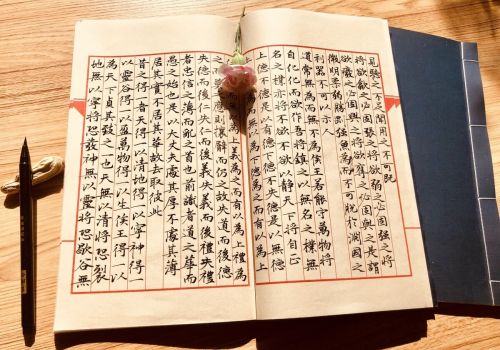 見聽之不足聞用之不可既
將欲歙之必固張之將欲弱之必固強之將
欲廢之必固興之將欲奪之必固與之是謂
微明柔弱勝剛強魚不可脫於淵國之
利器不可以示人
道常無為而無不為侯王若能守萬物將
自化化而欲作吾將鎮之以無名之樸無
名之樸亦將不欲不欲以靜天下將自正
上德不德是以有德下德不失德是以無德
上德無以為下德為之而有以為上
義為之而有以為上禮為
之而應則攘臂而扔之故失道而後德
失德而後仁失仁而後義失義而後禮夫禮
者忠信之薄而亂之首也前識者道之華而
愚之始也是以大丈夫處其厚不處其薄
居其實不居其華故去彼取此
昔之得一者天得一以清地得一以寧神得一
以靈谷得一以盈萬物得一以生侯王得一以
為天下貞其致之一也天無以清將恐裂
地無以寧將恐發神無以靈將恐歇谷無